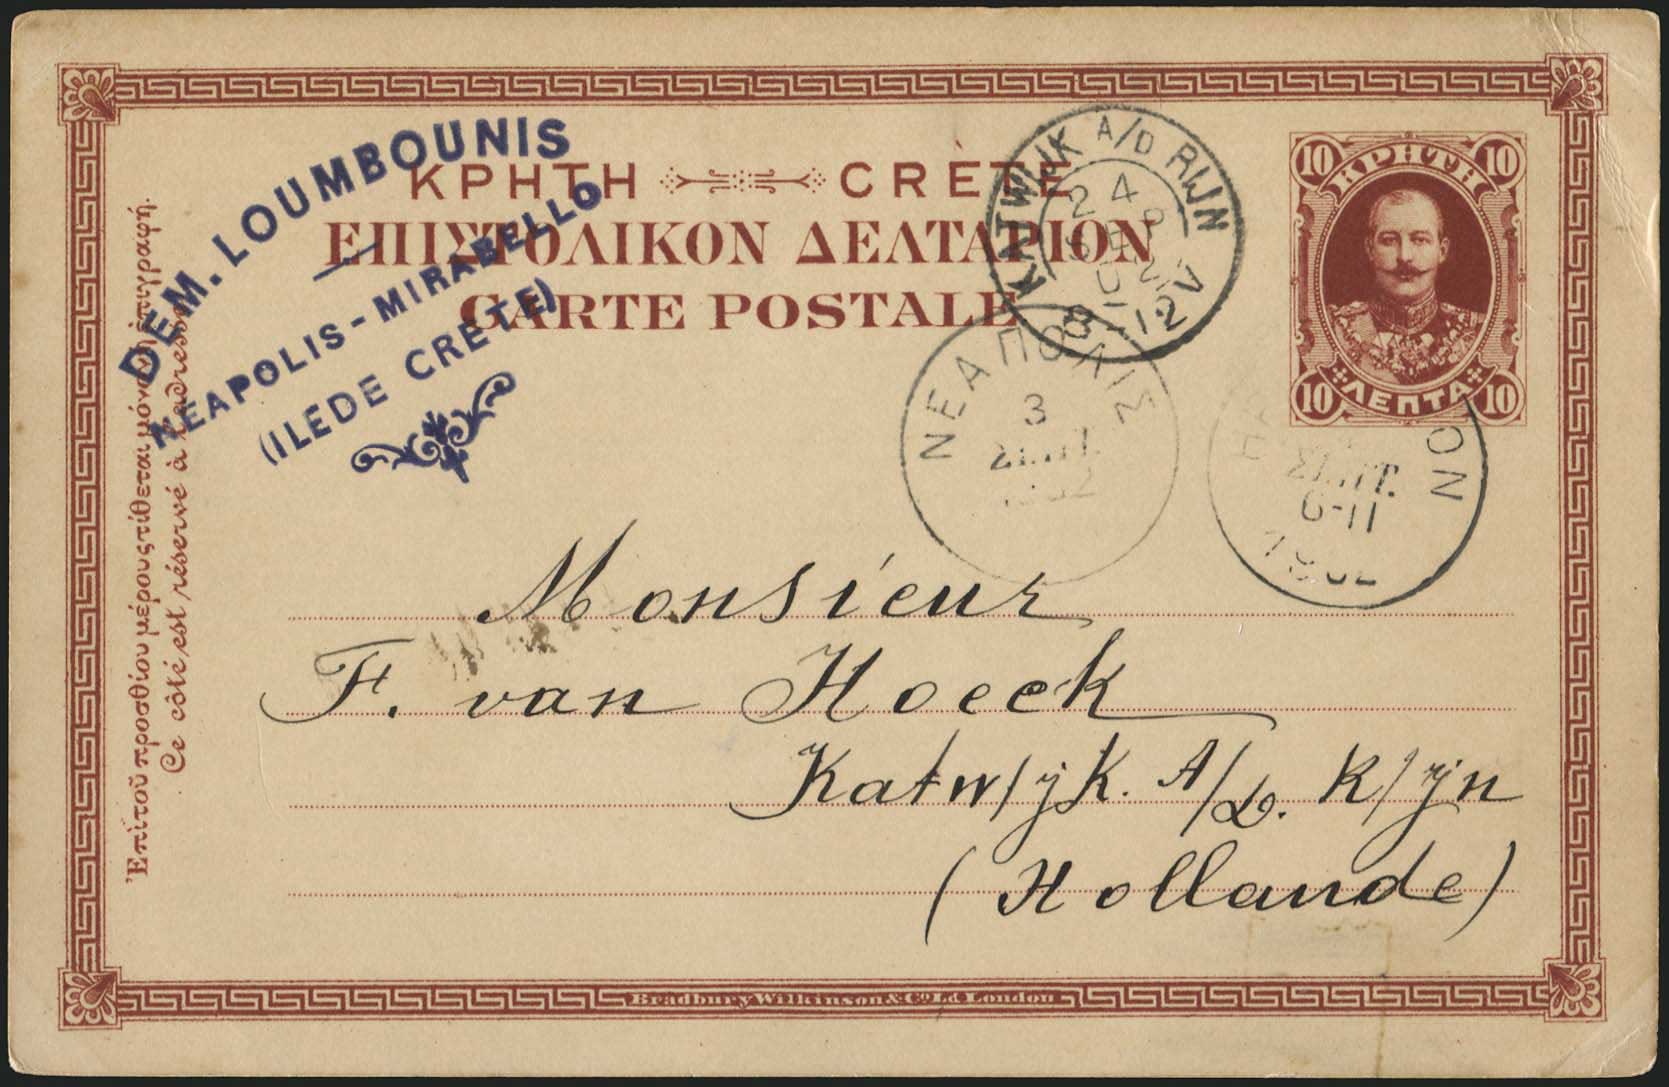 DEM. LOUMBOUNIS
NEAPOLIS - MIRABELLO
(ILEDE CRETE)
ΚΡΗΤΗ CRÈTE
ΕΠΙΣΤΟΛΙΚΟΝ ΔΕΛΤΑΡΙΟΝ
CARTE POSTALE
KATWIJK A/D RIJN
24 SEP
8-12V
10 ΚΡΗΤΗ 10
10 ΛΕΠΤΑ 10
ΝΕΑΠΟΛΙΣ
3
ΣΕΠΤ.
ΟΝ
ΣΕΠΤ.
1902
Ἐπὶ τοῦ προσθίου μέρους τίθεται μόνον ἡ ἐπιγραφή.
Ce côté est réservé à l'adresse
Monsieur
F. van Hoeck
Katwijk. A/D. Rijn
(Hollande)
Bradbury Wilkinson & Co Ld London